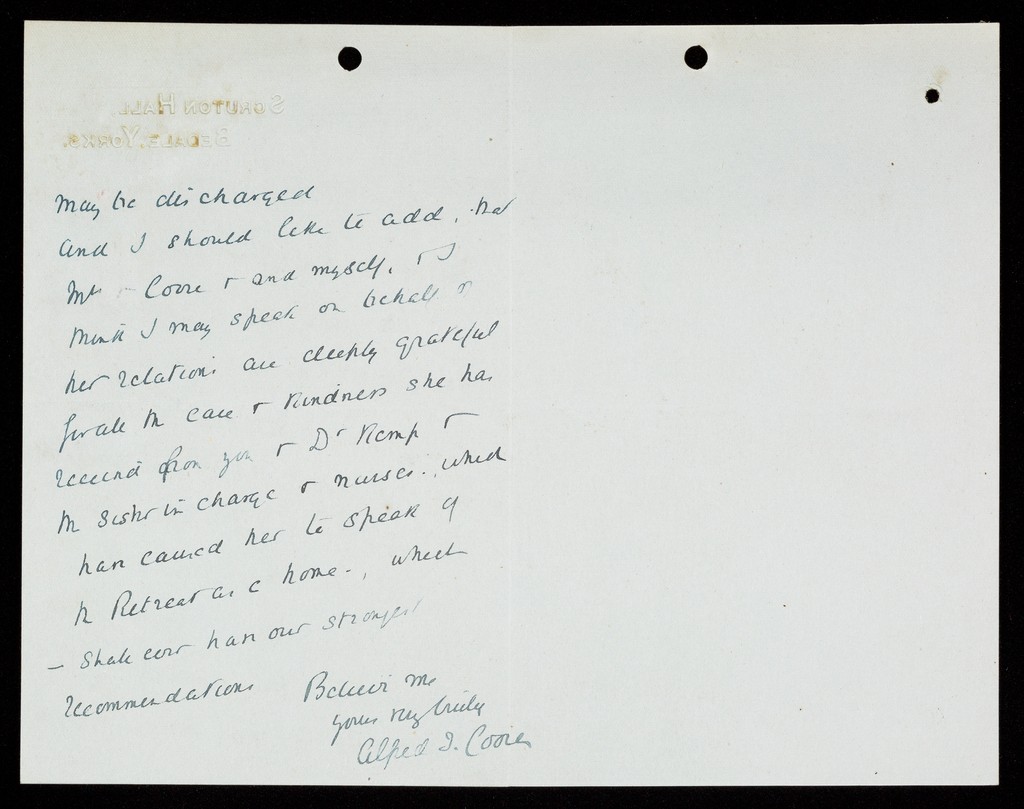 SCRUTON HALL.
BEDALE, YORKS.
may be discharged
and I should like to add, that
Mrs - Coore + and myself, + I
think I may speak on behalf of
her relations are deeply grateful
for all the care + kindness she has
received from you + Dr Kemp +
the Sister in charge + nurses, which
have caused her to speak of
the Retreat as a home -, which
- shall ever have our strongest
recommendations
Believe me
yours very truly
Alfred T. Coore